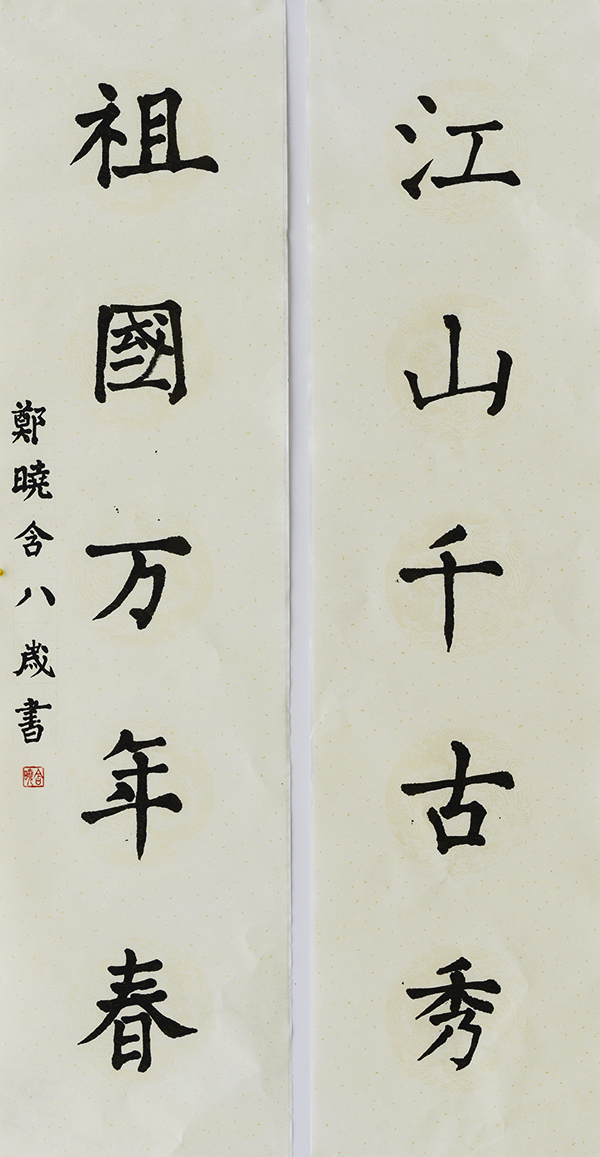 江山千古秀
祖國万年春
鄭曉含八歲書
曉含